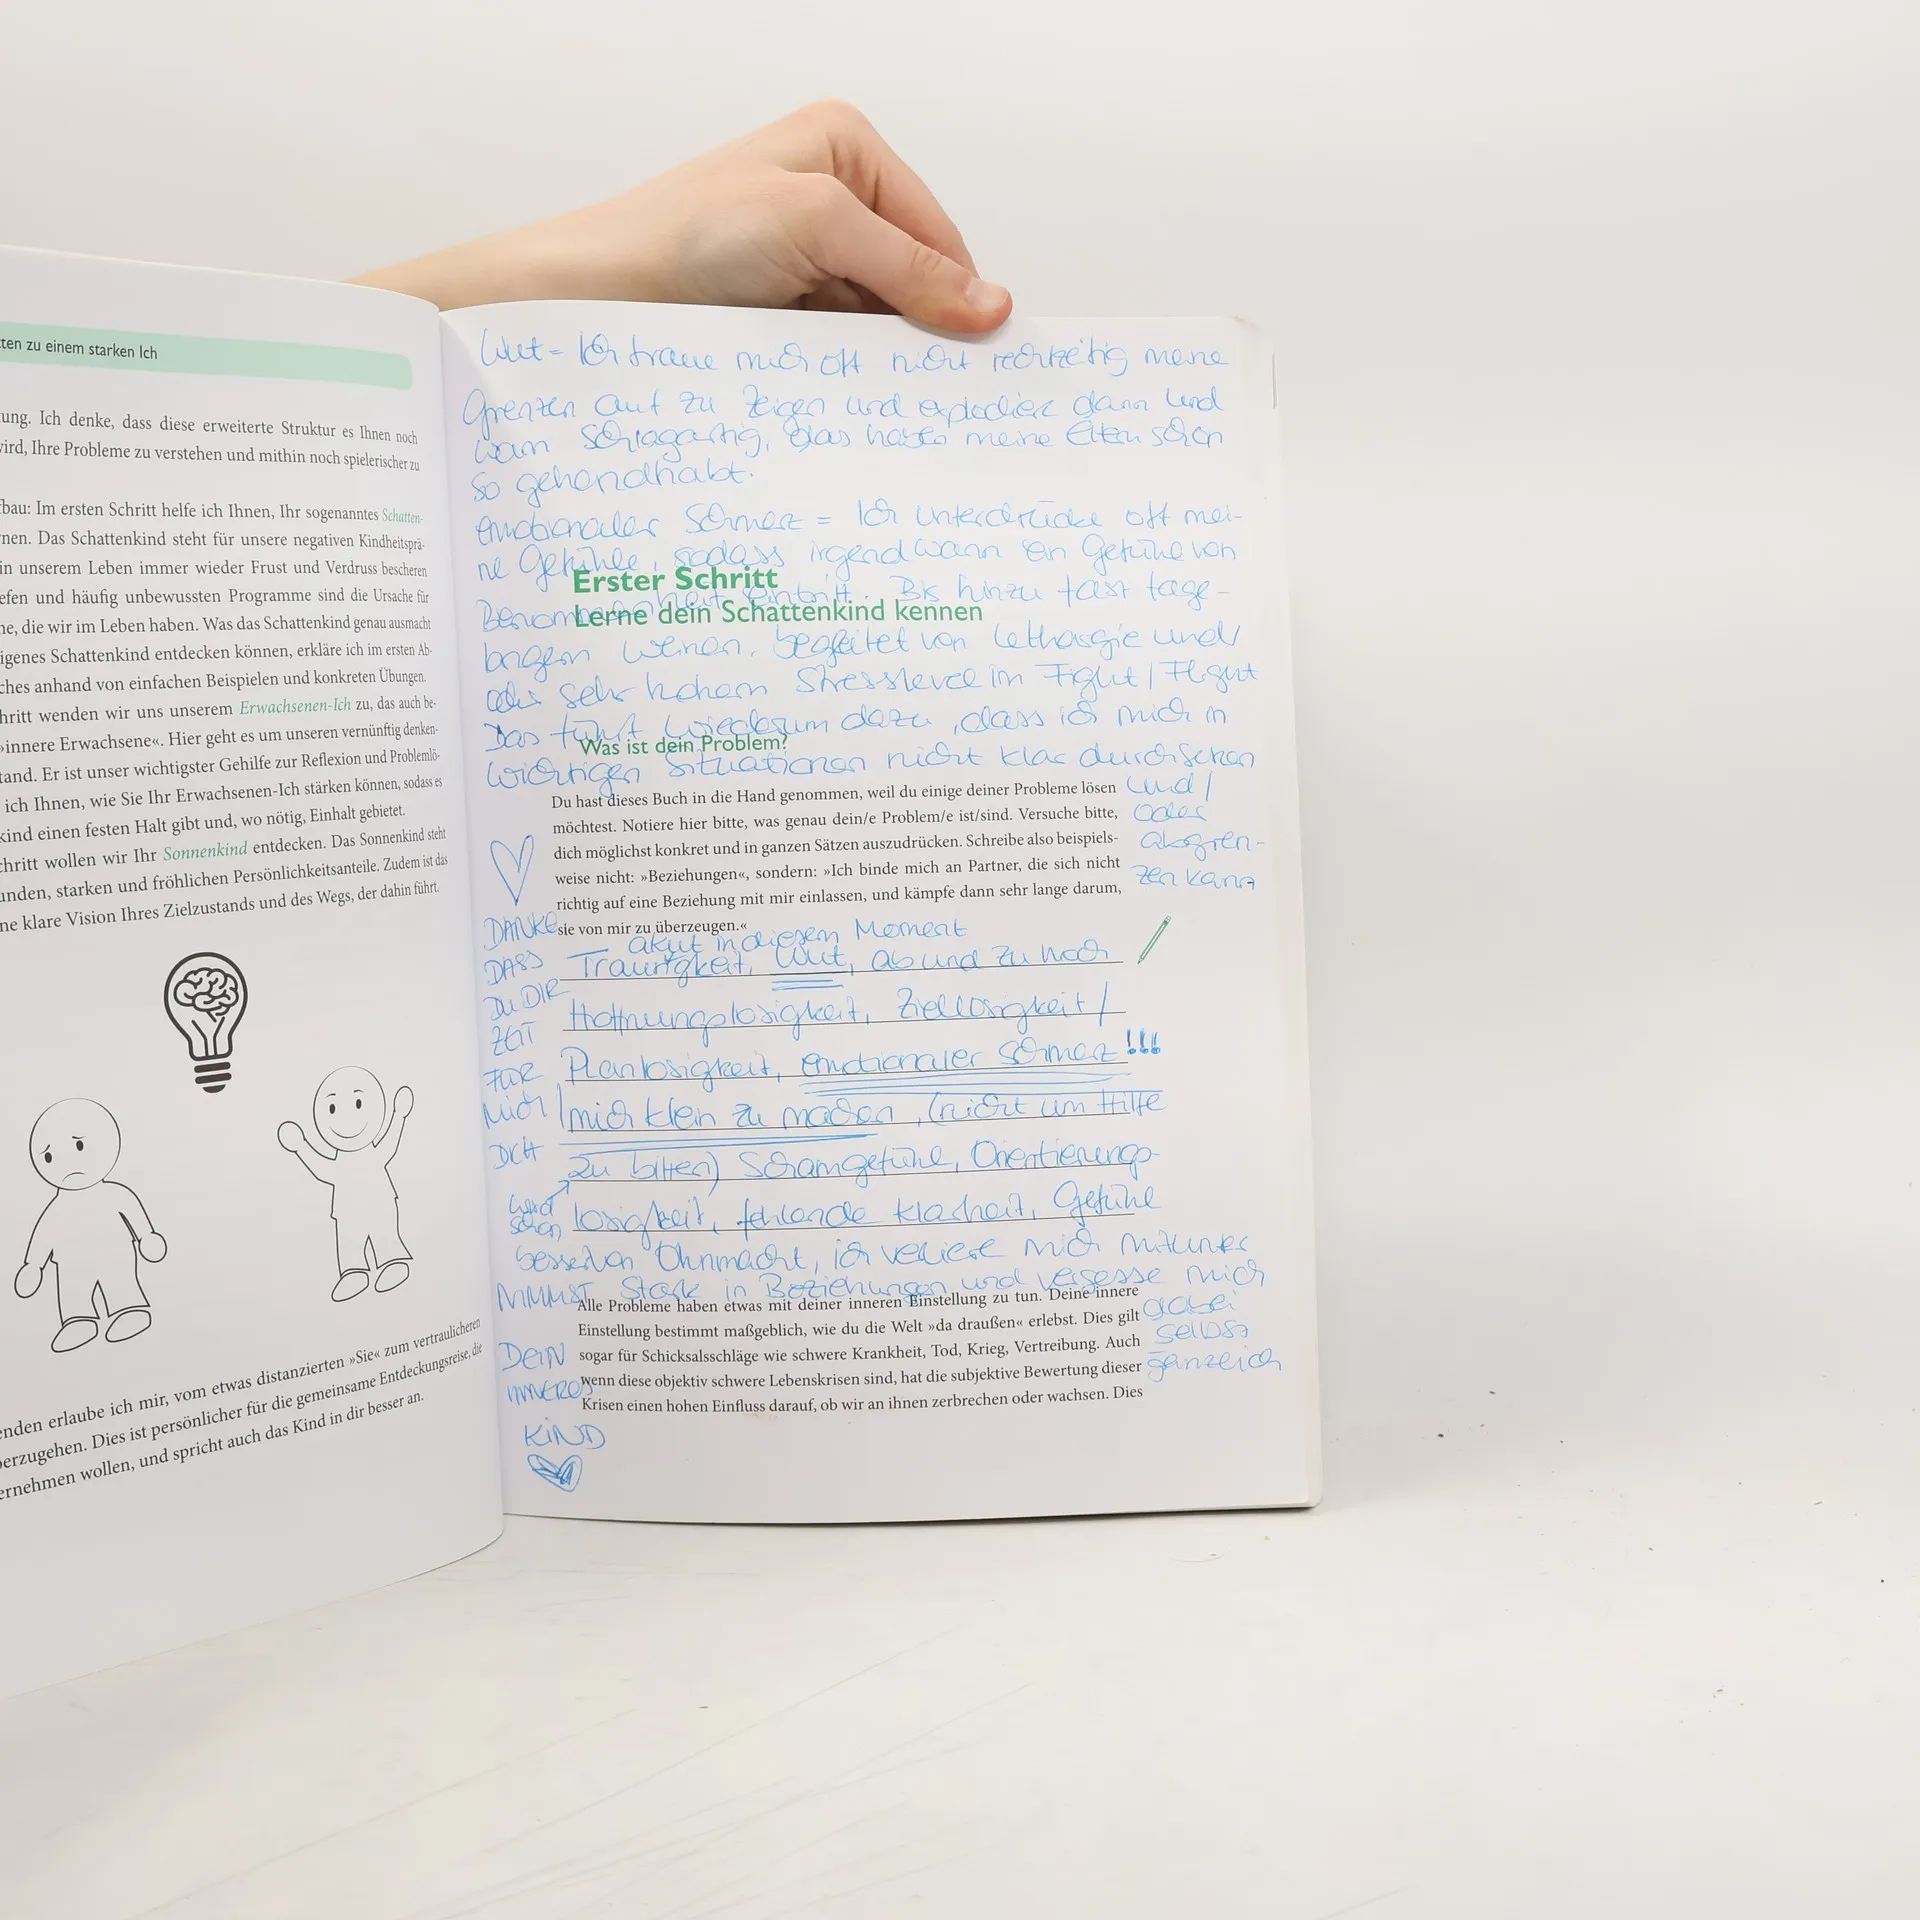 ten zu einem starken Ich
ung. Ich denke, dass diese erweiterte Struktur es Ihnen noch
ird, Ihre Probleme zu verstehen und mithin noch spielerischer zu
bau: Im ersten Schritt helfe ich Ihnen, Ihr sogenanntes Schatten-
nen. Das Schattenkind steht für unsere negativen Kindheitsprä-
in unserem Leben immer wieder Frust und Verdruss bescheren
efen und häufig unbewussten Programme sind die Ursache für
ne, die wir im Leben haben. Was das Schattenkind genau ausmacht
igenes Schattenkind entdecken können, erkläre ich im ersten Ab-
ches anhand von einfachen Beispielen und konkreten Übungen.
hritt wenden wir uns unserem Erwachsenen-Ich zu, das auch be-
»innere Erwachsene«. Hier geht es um unseren vernünftig denken-
tand. Er ist unser wichtigster Gehilfe zur Reflexion und Problemlö-
ich Ihnen, wie Sie Ihr Erwachsenen-Ich stärken können, sodass es
kind einen festen Halt gibt und, wo nötig, Einhalt gebietet.
chritt wollen wir Ihr Sonnenkind entdecken. Das Sonnenkind steht
unden, starken und fröhlichen Persönlichkeitsanteile. Zudem ist das
ne klare Vision Ihres Zielzustands und des Wegs, der dahin führt.
enden erlaube ich mir, vom etwas distanzierten »Sie« zum vertraulicheren
berzugehen. Dies ist persönlicher für die gemeinsame Entdeckungsreise, die
ernehmen wollen, und spricht auch das Kind in dir besser an.
Wut = Ich traue mich oft nicht rechtzeitig meine
Grenzen auf zu zeigen und explodiere dann und
wann schlagartig, das haben meine Eltern schon
so gehandhabt.
emotionaler Schmerz = Ich unterdrücke oft mei-
ne Gefühle, sodass irgendwann ein Gefühl von
Erster Schritt
Benommenheit eintritt. Bis hinzu fast tage-
Lerne dein Schattenkind kennen
langem weinen, begleitet von Lethargie und/
oder sehr hohem Stresslevel im Fight/Flight
Das führt wiederum dazu, dass ich mich in
Was ist dein Problem?
wichtigen Situationen nicht klar durchsetzen
und/
oder
abgren-
zen kann
Du hast dieses Buch in die Hand genommen, weil du einige deiner Probleme lösen
möchtest. Notiere hier bitte, was genau dein/e Problem/e ist/sind. Versuche bitte,
dich möglichst konkret und in ganzen Sätzen auszudrücken. Schreibe also beispiels-
weise nicht: »Beziehungen«, sondern: »Ich binde mich an Partner, die sich nicht
richtig auf eine Beziehung mit mir einlassen, und kämpfe dann sehr lange darum,
sie von mir zu überzeugen.«
akut in diesem Moment
Traurigkeit, Wut, ab und zu noch
Hoffnungslosigkeit, Ziellosigkeit/
Planlosigkeit, emotionaler Schmerz!!!
mich klein zu machen, (nicht um Hilfe
zu bitten) Schamgefühl, Orientierungs-
losigkeit, fehlende Klarheit, Gefühl
von Ohnmacht, ich verliere mich mitunter
stark in Beziehungen und vergesse mich
dabei
selbst
gänzlich
DANKE
DASS
DU DIR
ZEIT
FÜR
MICH/
DICH
NIMMST
DEIN
INNERES
KIND
wird
schon
besser
Alle Probleme haben etwas mit deiner inneren Einstellung zu tun. Deine innere
Einstellung bestimmt maßgeblich, wie du die Welt »da draußen« erlebst. Dies gilt
sogar für Schicksalsschläge wie schwere Krankheit, Tod, Krieg, Vertreibung. Auch
wenn diese objektiv schwere Lebenskrisen sind, hat die subjektive Bewertung dieser
Krisen einen hohen Einfluss darauf, ob wir an ihnen zerbrechen oder wachsen. Dies